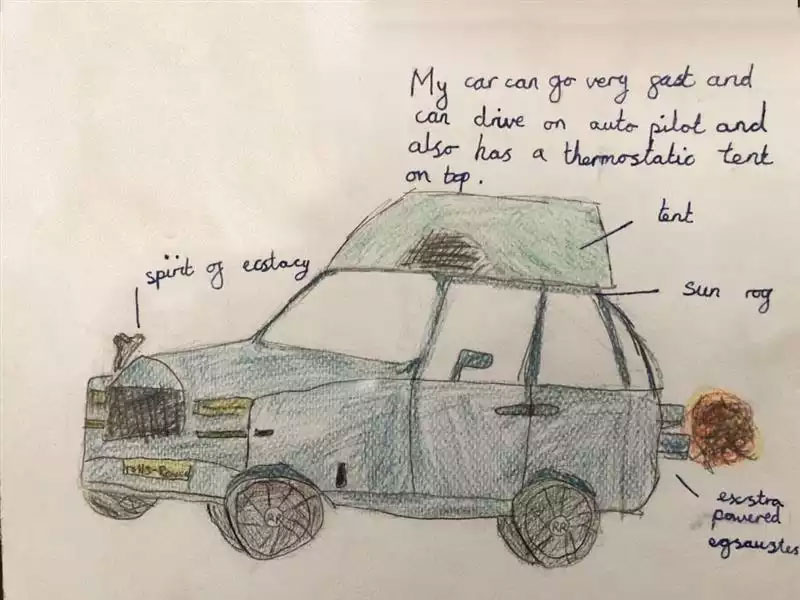 My car can go very fast and
can drive on auto pilot and
also has a thermostatic tent
on top.
tent
spirit of ecstacy
sun rof
rolls-Royce
exstra
powered
RR
RR